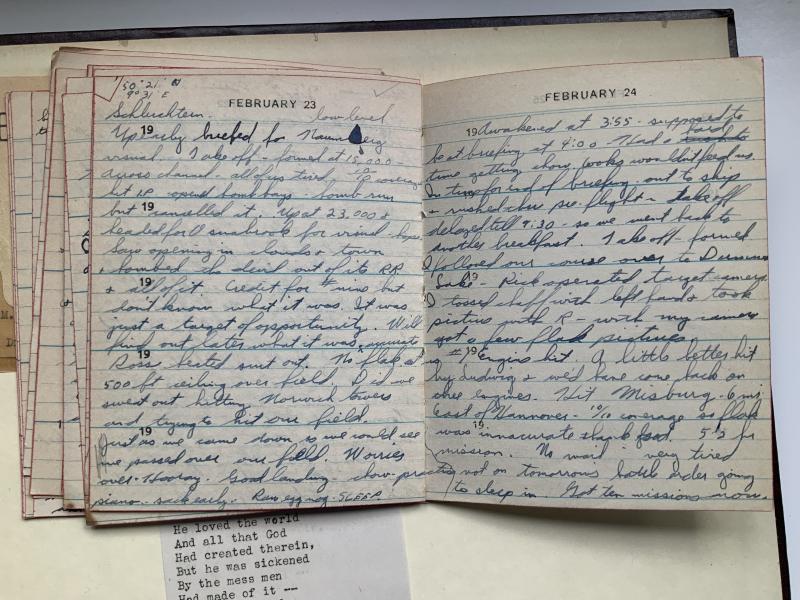 50° 21' N
9° 31 E
FEBRUARY 23
Schluchtern. low level
19
Up early briefed for
visual. Take off - formed at 15,000 -
across channel - all of us tired. 10/10 coverage
hit IP opened bomb bays - bomb run
but 19 cancelled it. Up at 23,000 &
headed for Osnabrook for visual -
Saw opening in clouds & town
& bombed the devil out of it RR
19
& all of it. Credit for # nine but
don't know what it was. It was
just a target of opportunity. Will
find out later what it was. accurate
19
Ross heated suit out. No flak at
500 ft ceiling over field. Did we
sweat out hitting Norwich towers
and trying to hit our field.
19
Just as we came down so we could see
we passed over our field. Worries
over. Hooray. Good landing chow - practice
piano - sack early. Raw egg nog - SLEEP
FEBRUARY 24
19 Awakened at 3:55 - supposed to
be at briefing at 4:00 - Had a hard
time getting chow, cooks wouldn't feed us.
In time for end of briefing - out to ship
& rushed thru pre-flight - take off
delayed till 9:30 - so we went back to
another breakfast. Take off - formed
& followed our course over to Dummer
Lake - Rick operated target camera
I tossed chaff with left hand & took
pictures with R - with my camera
got a few flak pictures
# 19 Engine hit. A little better hit
by Ludwig & we'd have come back on
three engines. Hit Misburg - 6 mi
East of Hannover - 10/10 coverage so flak
was 19 innacurate thank God. 5 1/2 hr
mission. No mail - very tired
not on tomorrow's battle order going
to sleep in Got ten missions now.
He loved the world
And all that God
Had created therein,
But he was sickened
By the mess men
Had made of it --